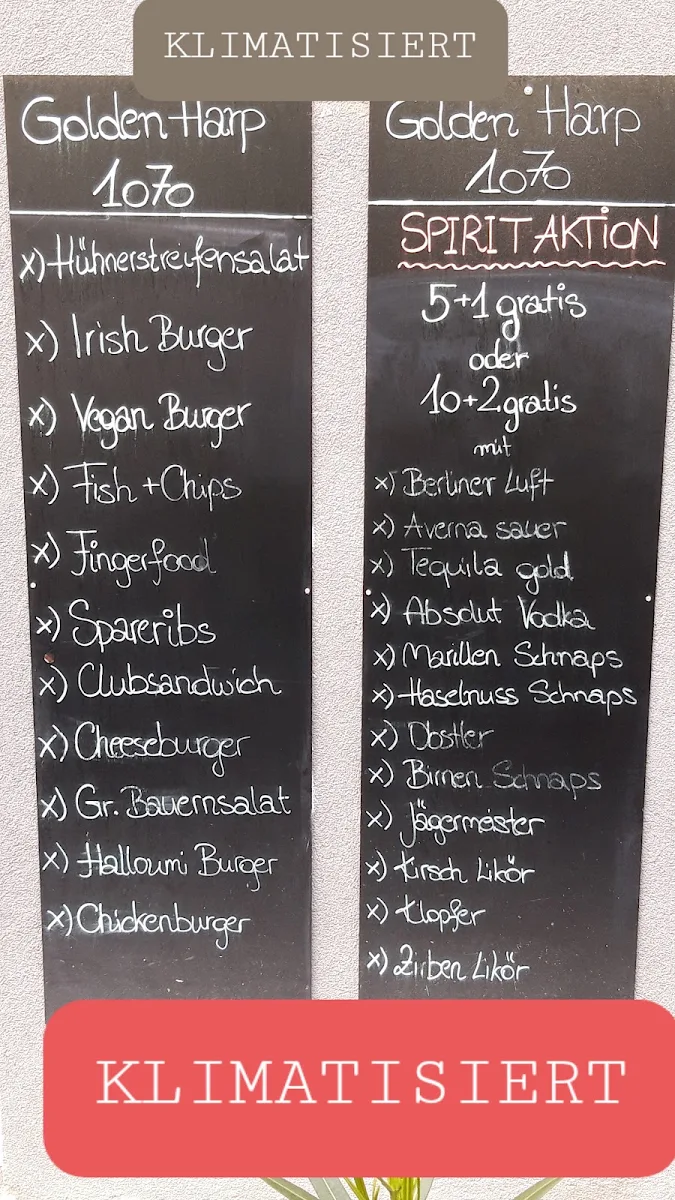 KLIMATISIERT
Golden Harp
1070
x) Hühnerstreifensalat
x) Irish Burger
x) Vegan Burger
x) Fish + Chips
x) Fingerfood
x) Spareribs
x) Clubsandwich
x) Cheeseburger
x) Gr. Bauernsalat
x) Halloumi Burger
x) Chickenburger
Golden Harp
1070
SPIRIT AKTION
5+1 gratis
oder
10+2 gratis
mit
x) Berliner Luft
x) Averna sauer
x) Tequila gold
x) Absolut Vodka
x) Marillen Schnaps
x) Haselnuss Schnaps
x) Obstler
x) Birnen Schnaps
x) Jägermeister
x) Kirsch Likör
x) Klopfer
x) Zirben Likör
KLIMATISIERT